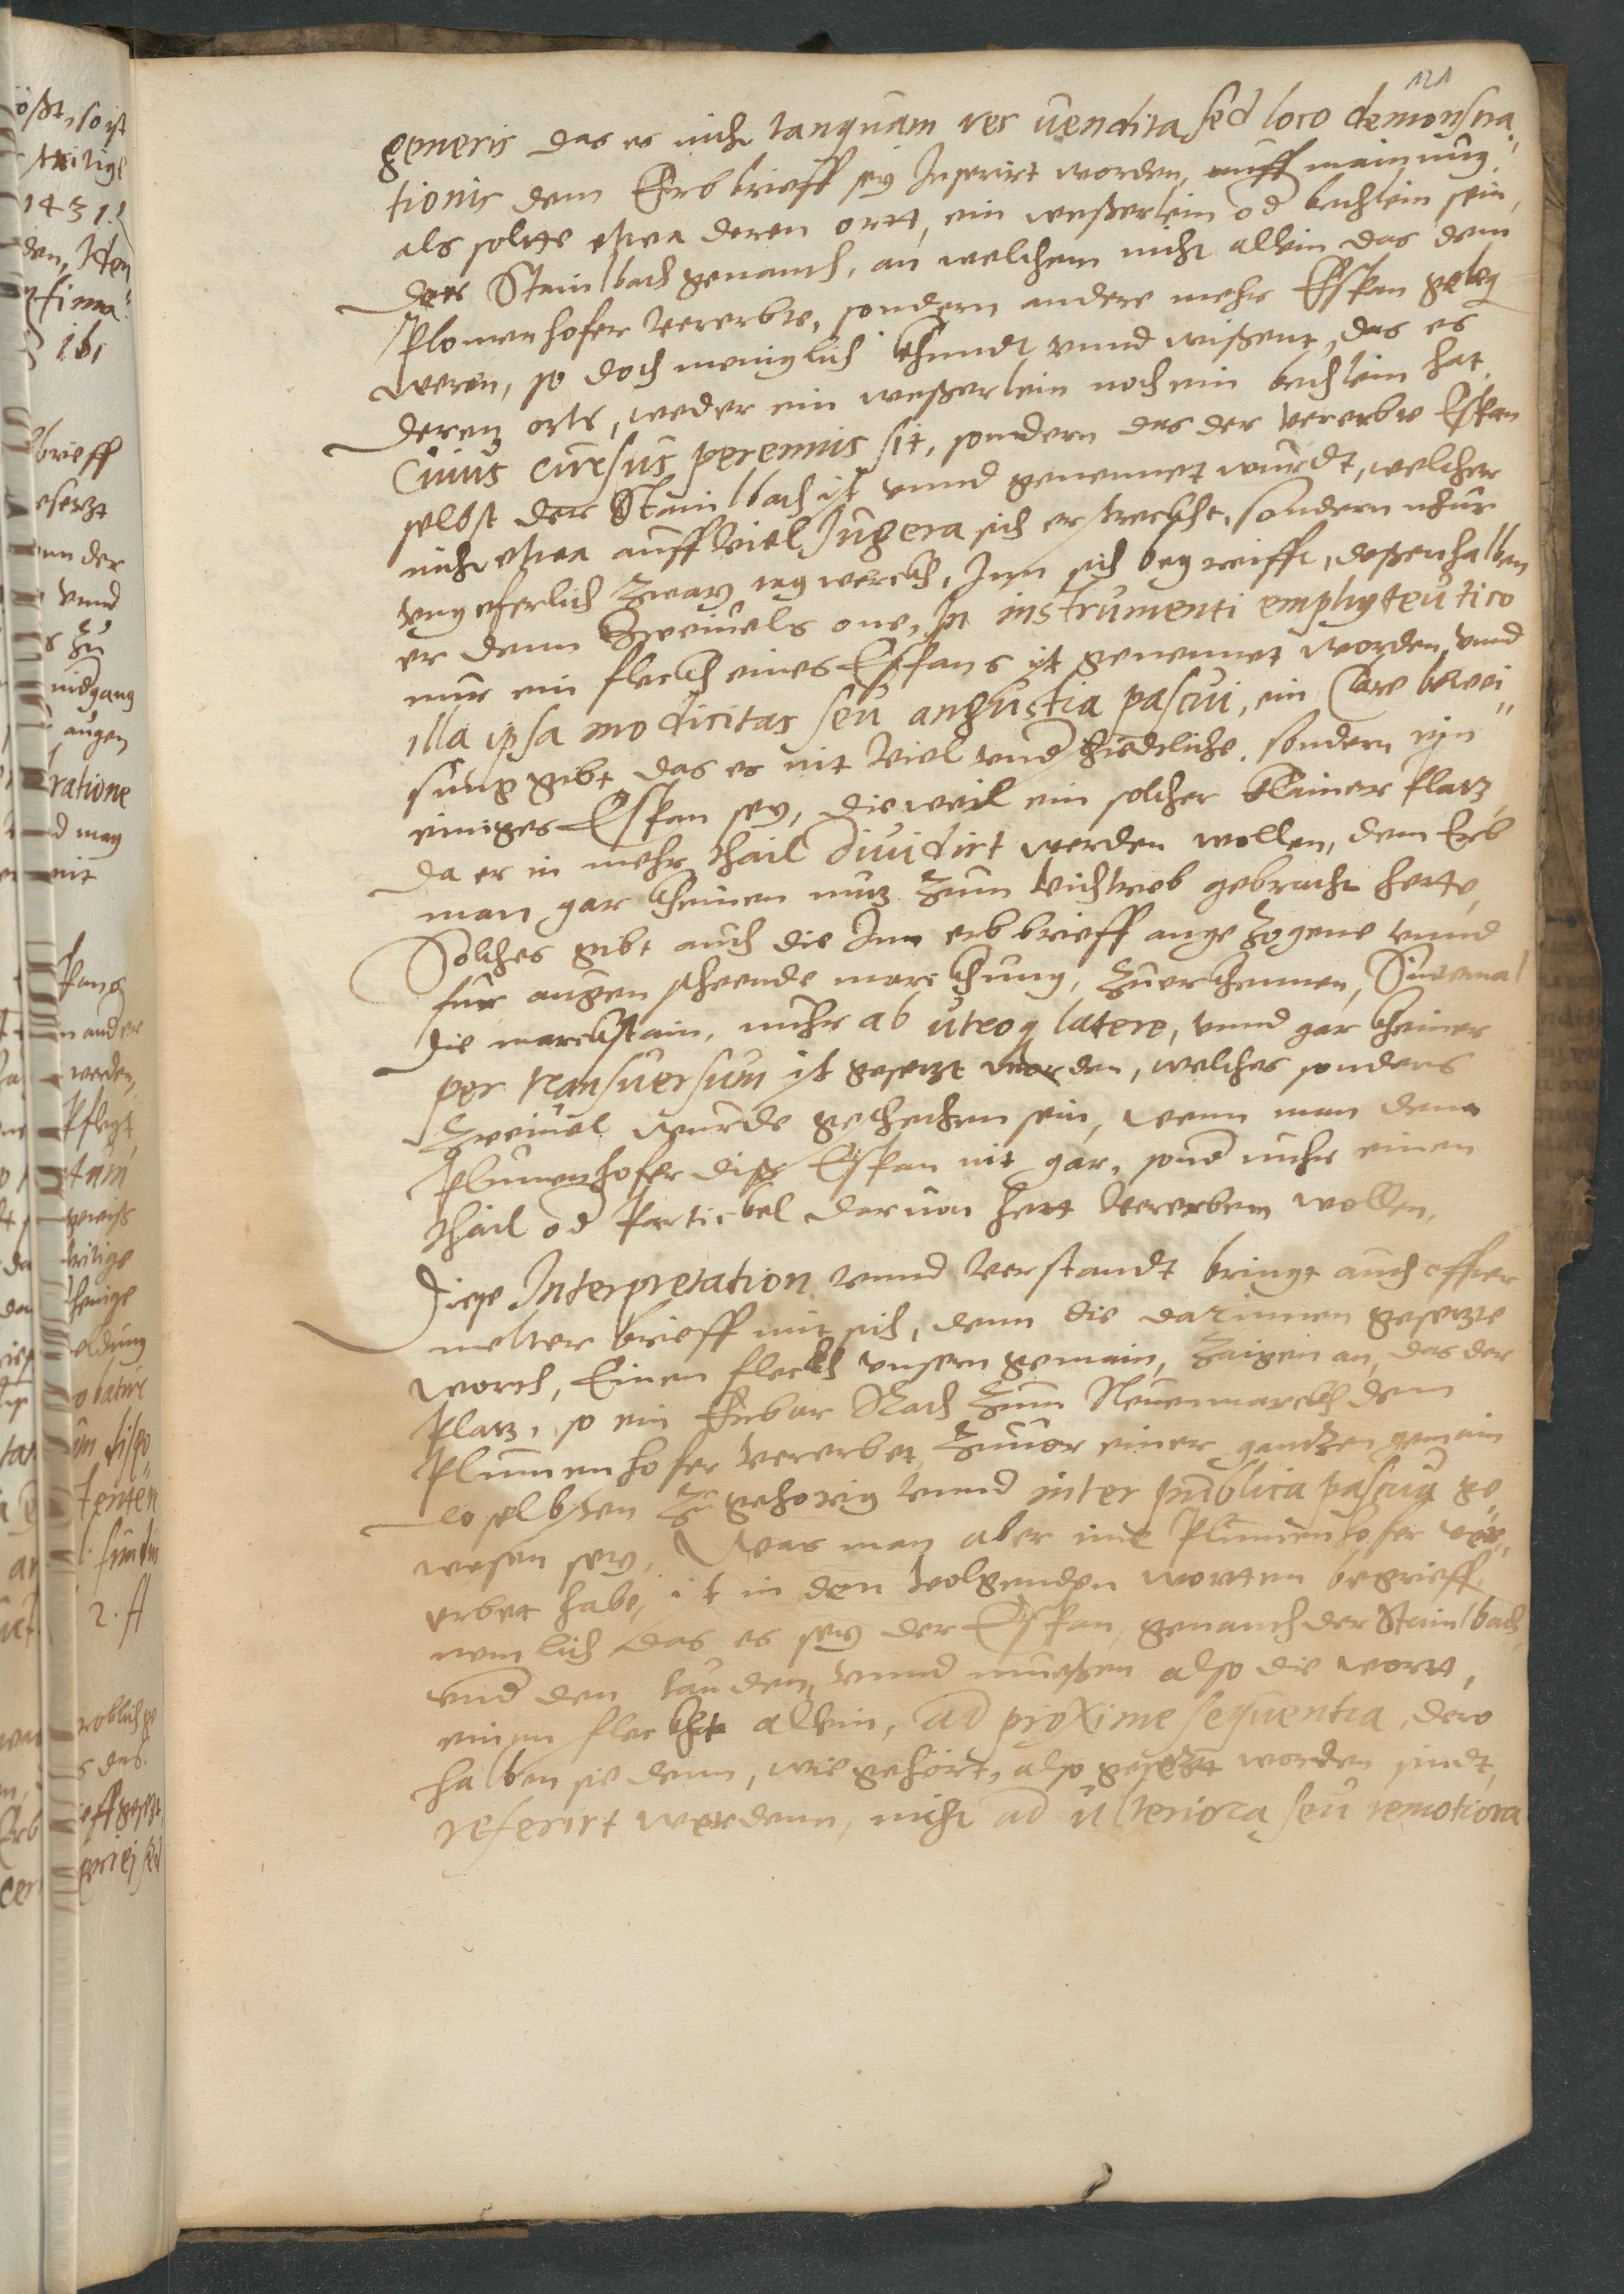 121
generis das es nicht tanquam res uendita sed loco demonstra
tionis dem Erbbrieff sey Inserirt worden, auff mainung,
als solte etwa deren ortt, ein weßerlein od bechlein sein,
der Stainlbach genanth, an welchem nicht allein das dem
Plomenhofer vererbte, sondern andere mehr Esspan geleg
weren, so doch meniglich khundt vnnd wißent, das es
deren orts, weder ein weßerlein noch ein bechlein hat,
Cuius cursus perennis sit, sondern das der vererbte Espan
selbst der Stainlbach ist vnnd genennet wurdt, welcher
nicht etwa auff viel Jugera sich erstreckht, sondern nhur
vngeferlich zway tagwerckh, Inn sich begreifft, deßenhalben
er denn Zweiuels one, In instrumenti emphyteutico
nur ein fleckh eines Espans ist genennet worden, vnnd
illa ipsa modicitas seu angustia pascui, ein Clare bewei
sung gibt das es nit viel vnd schiedliche, sondern ein
einiges Espan sey, dieweil ein solcher klainer Platz,
da er in mehr thail diuidirt werden wollen, dem Erb
man gar kheinen nutz zum viechtrieb gebracht hette,
Solches gibt auch die Inn erbbrieff angezogene vnnd
fur augen steende marckhung, zuerkhennen, Sintemal
die marckstain, nuhr ab utroq latere, vnnd gar kheiner
per transuersum ist gesetzt worden, welches sonders
Zweiuel wurde geschechen sein, wenn man dem
Plumenhofer diß Espan nit gar, sond nuhr einen
thail od Partickel daruon hett vererben wollen.
Diese Interpretation vnnd verstandt bringt auch offter
melter brieff mit sich, denn die darinnen gesetzte
worth, Einen fleckh vnsern gemain, zaigen an, das der
Platz, so ein Erbar Rath zum Neuenmarckh dem
Plummenhofer vererbet, zuuor einer gantzen gemain
doselbsten zugehorig vnnd inter publica pascua ge
wesen sey, Was man aber ime Plumenhofer ver
erbet habe, ist in den volgenden wortten begrieff,
nemlich das es sey der Espan, genanth der Stainlbach,
vnd den lauden, vnnd mueßen also die wortt,
einen fleckh allein, ad proxime sequentia, dero
halben sie denn, wie gehört, also gesetzt worden sindt,
referirt werdenn, nicht ad ulteriora seu remotiora